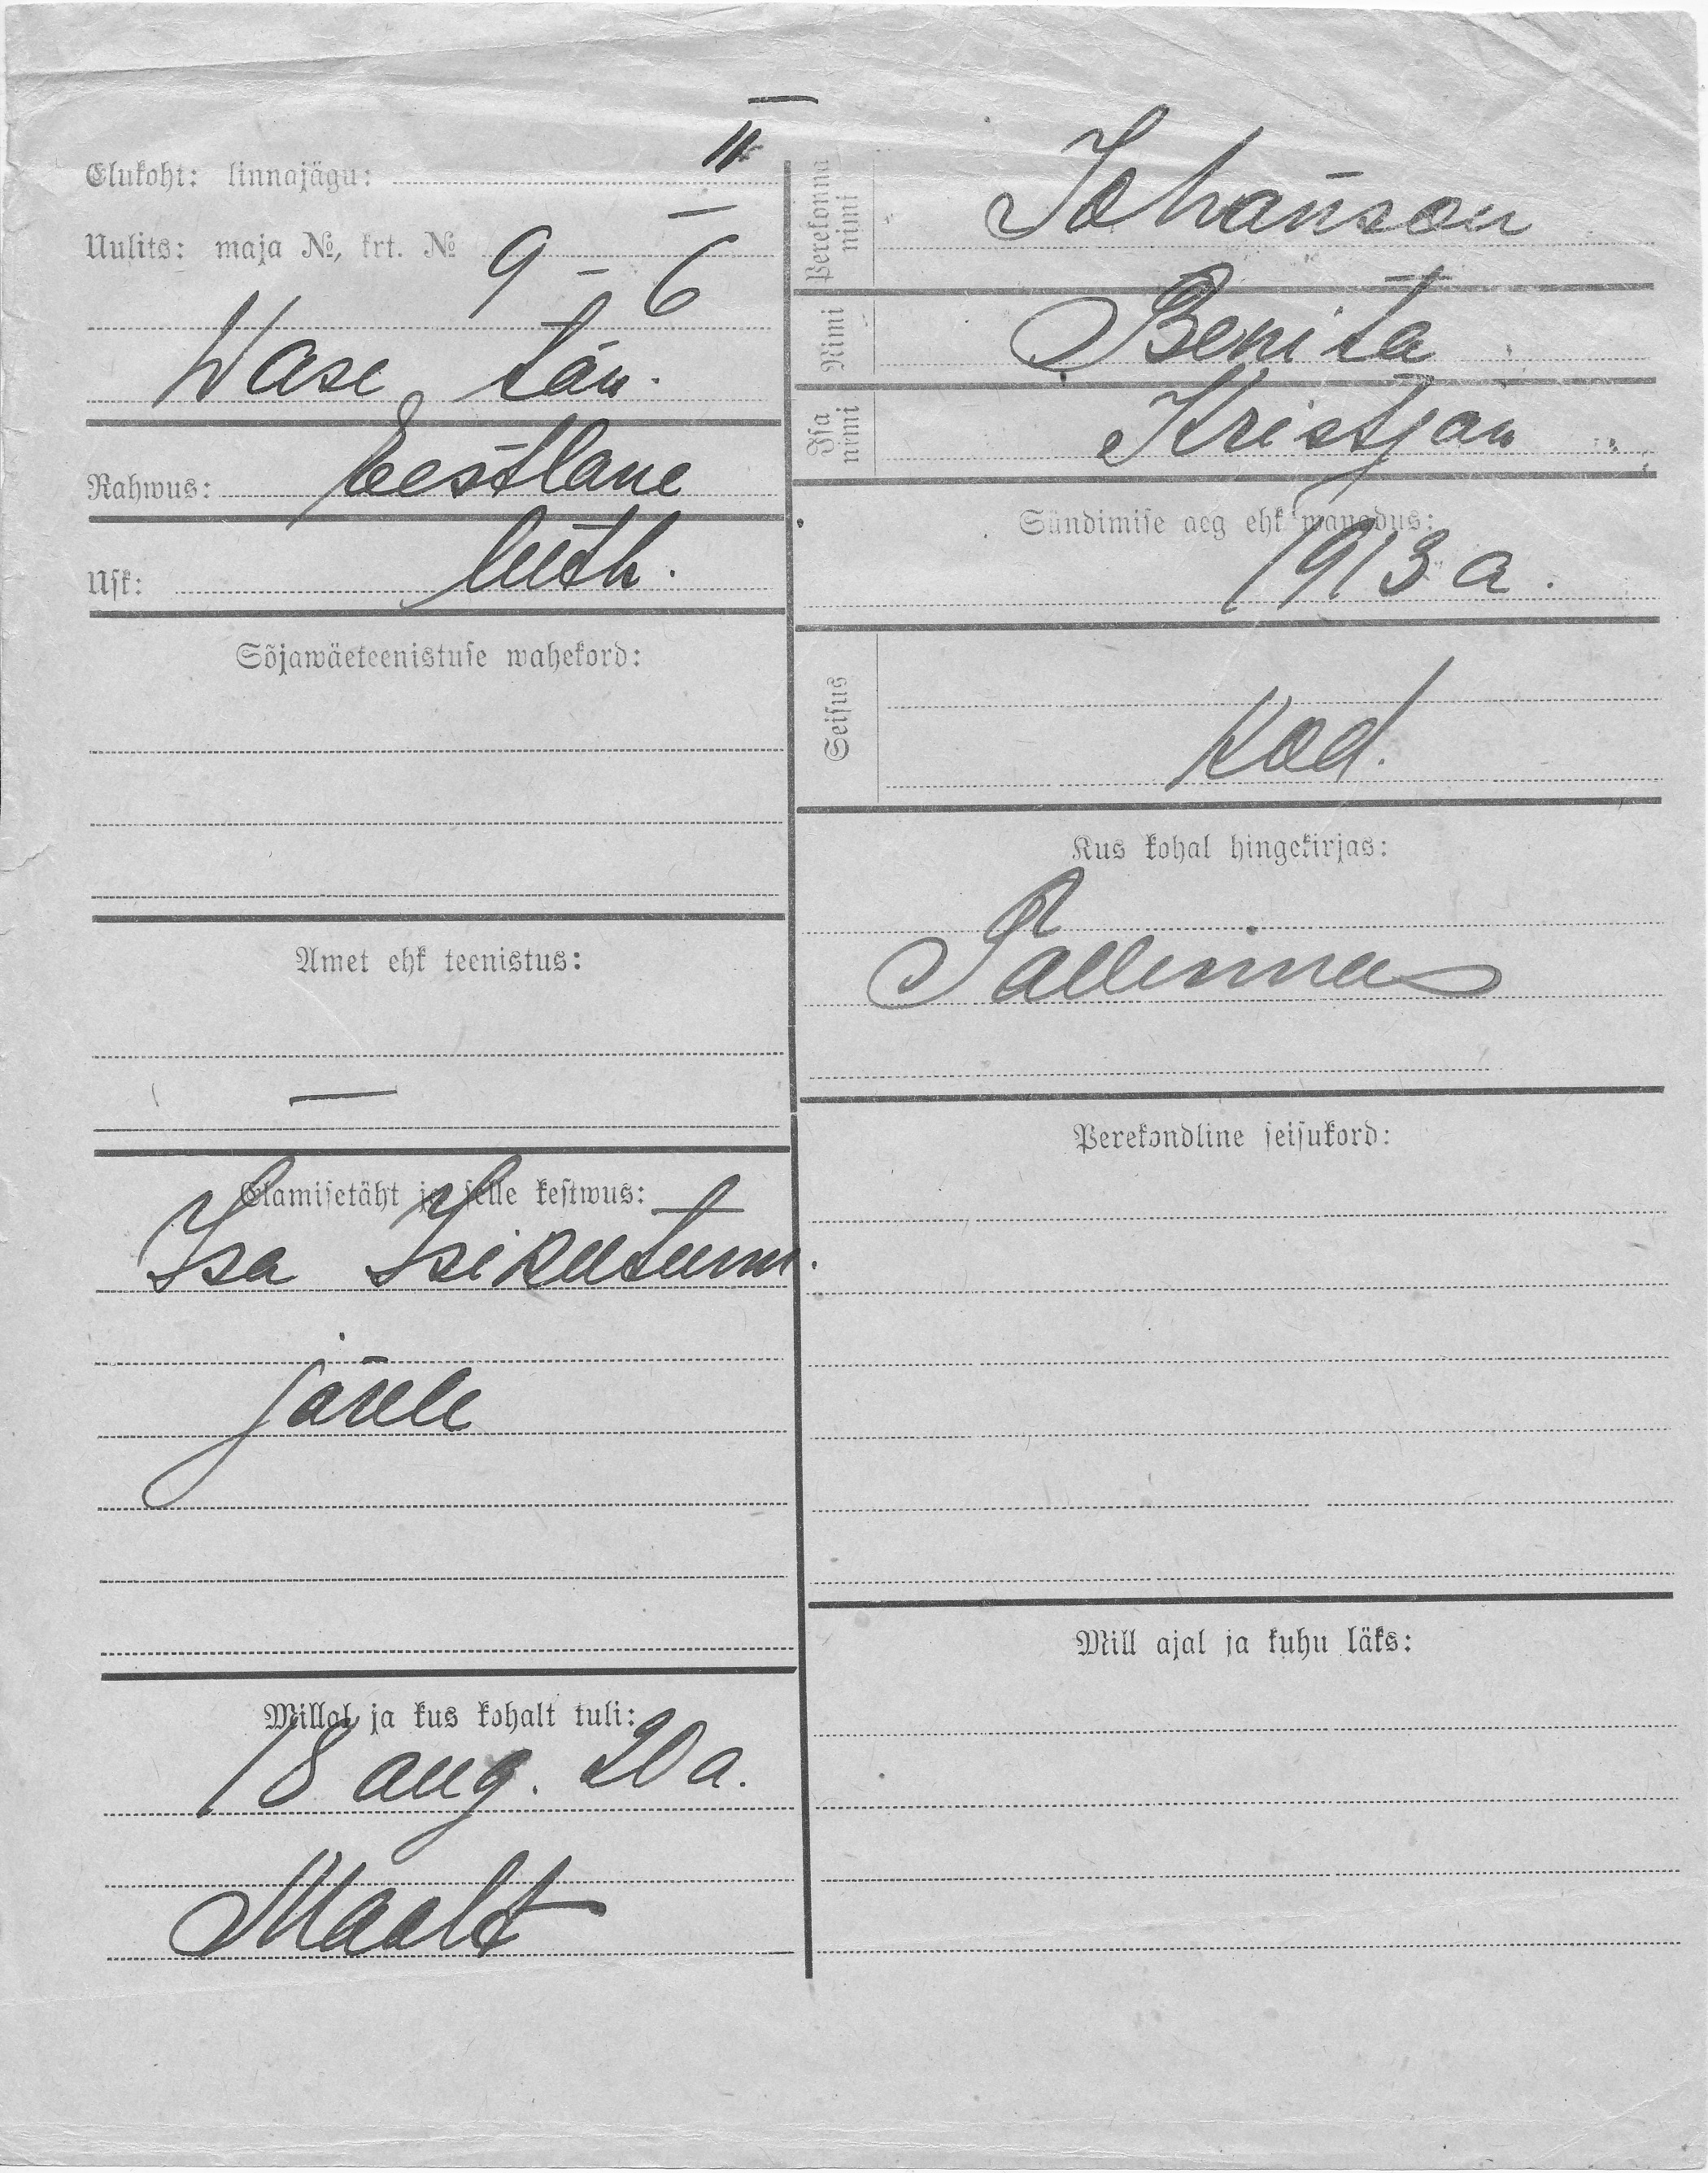 Elukoht: linnajägu: II
Uulits: maja №, krt. № 9 – 6
Wase tän.
Rahwus: Eestlane
Usk: luth.
Sõjawäeteenistuse wahekord:
Amet ehk teenistus:
—
Elamisetäht ja selle kestwus:
Isa Isikutunn.
järele
Millal ja kus kohalt tuli:
18 aug. 20 a.
Maalt
Perekonna nimi Johanson
Nimi Benita
Isa nimi Kristjan
Sündimise aeg ehk wanadus:
1913 a.
Seisus
Kod.
Kus kohal hingekirjas:
Tallinnas
Perekondline seisukord:
Mill ajal ja kuhu läks: